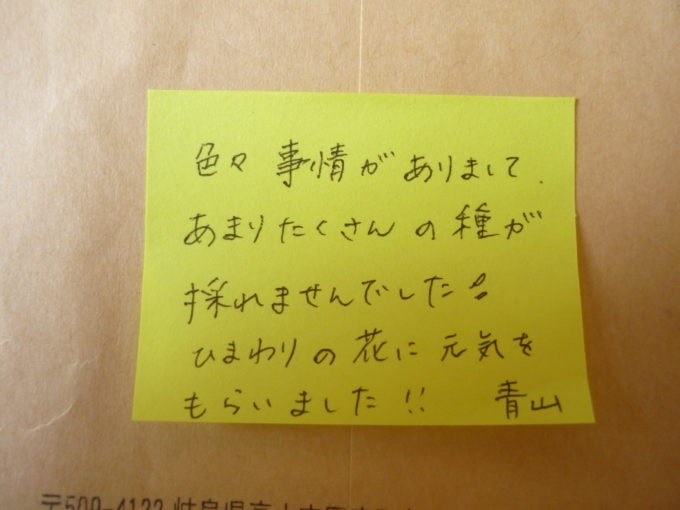 色々事情がありまして、
あまりたくさんの種が
採れませんでした!
ひまわりの花に元気を
もらいました!! 青山
〒509-4122 岐阜県高山市国